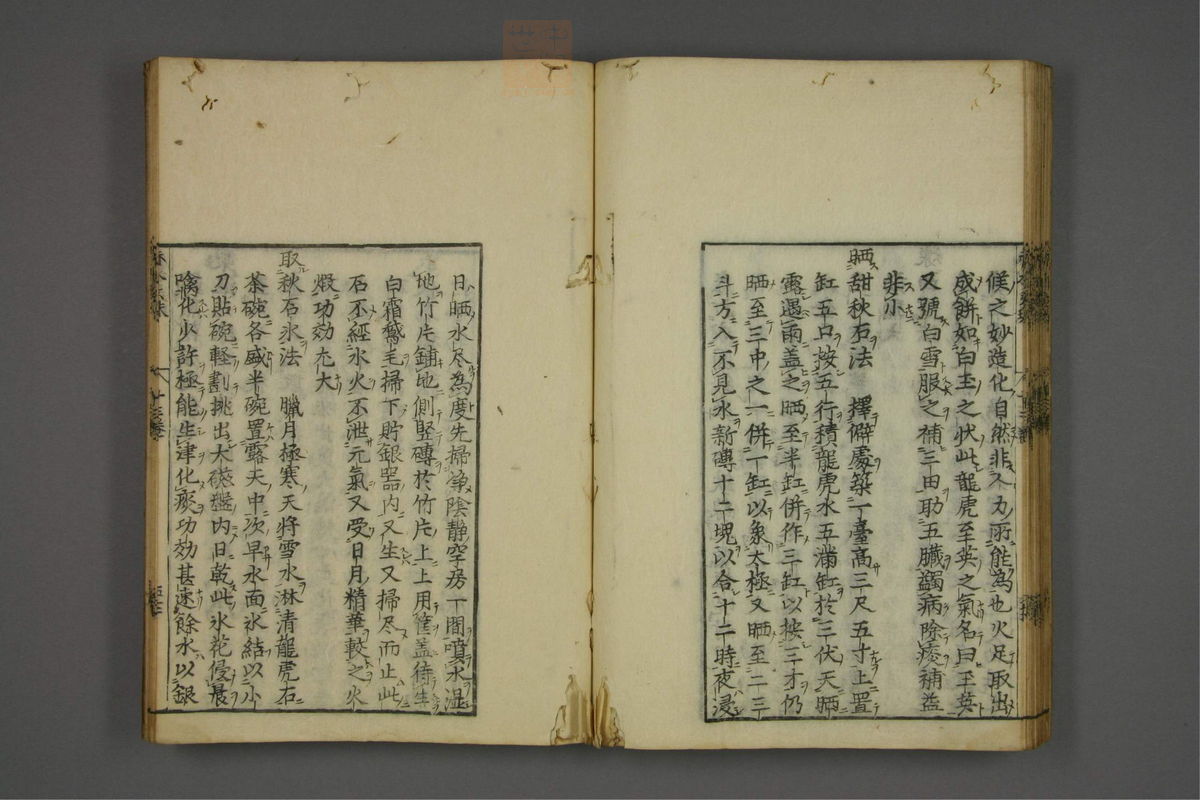 候之妙造化自然非人力所能為也火足取出
成餅如白玉之状此龍虎至英之氣名曰玉英
又號白雪服之補三田助五臓蠲病除痿補益
非小
晒甜秋石法　擇僻處築一臺高三尺五寸上置
缸五口按五行積龍虎水五滿缸於三伏天晒
露遇雨盖之晒至半缸併作三缸以按三才仍
晒至三中之一併一缸以象太極又晒至二三
斗方入不見水新磚十二塊以合十二時夜浸
日晒水尽為度先掃浄陰静空房一間噴水湿
地竹片鋪地側竪磚於竹片上上用筐盖待生
白霜鵞毛掃下貯銀器内又生又掃尽而止此
石不經水火不泄元氣又受日月精華較之火
煅功効尤大
取秋石氷法　臘月極寒天将雪水淋清龍虎石
茶碗各盛半碗置露天中次早水面氷結以小
刀貼碗軽劃挑出大磁盤内日乾此氷花侵晨
噙化少許極能生津化痰功効甚速餘水以銀